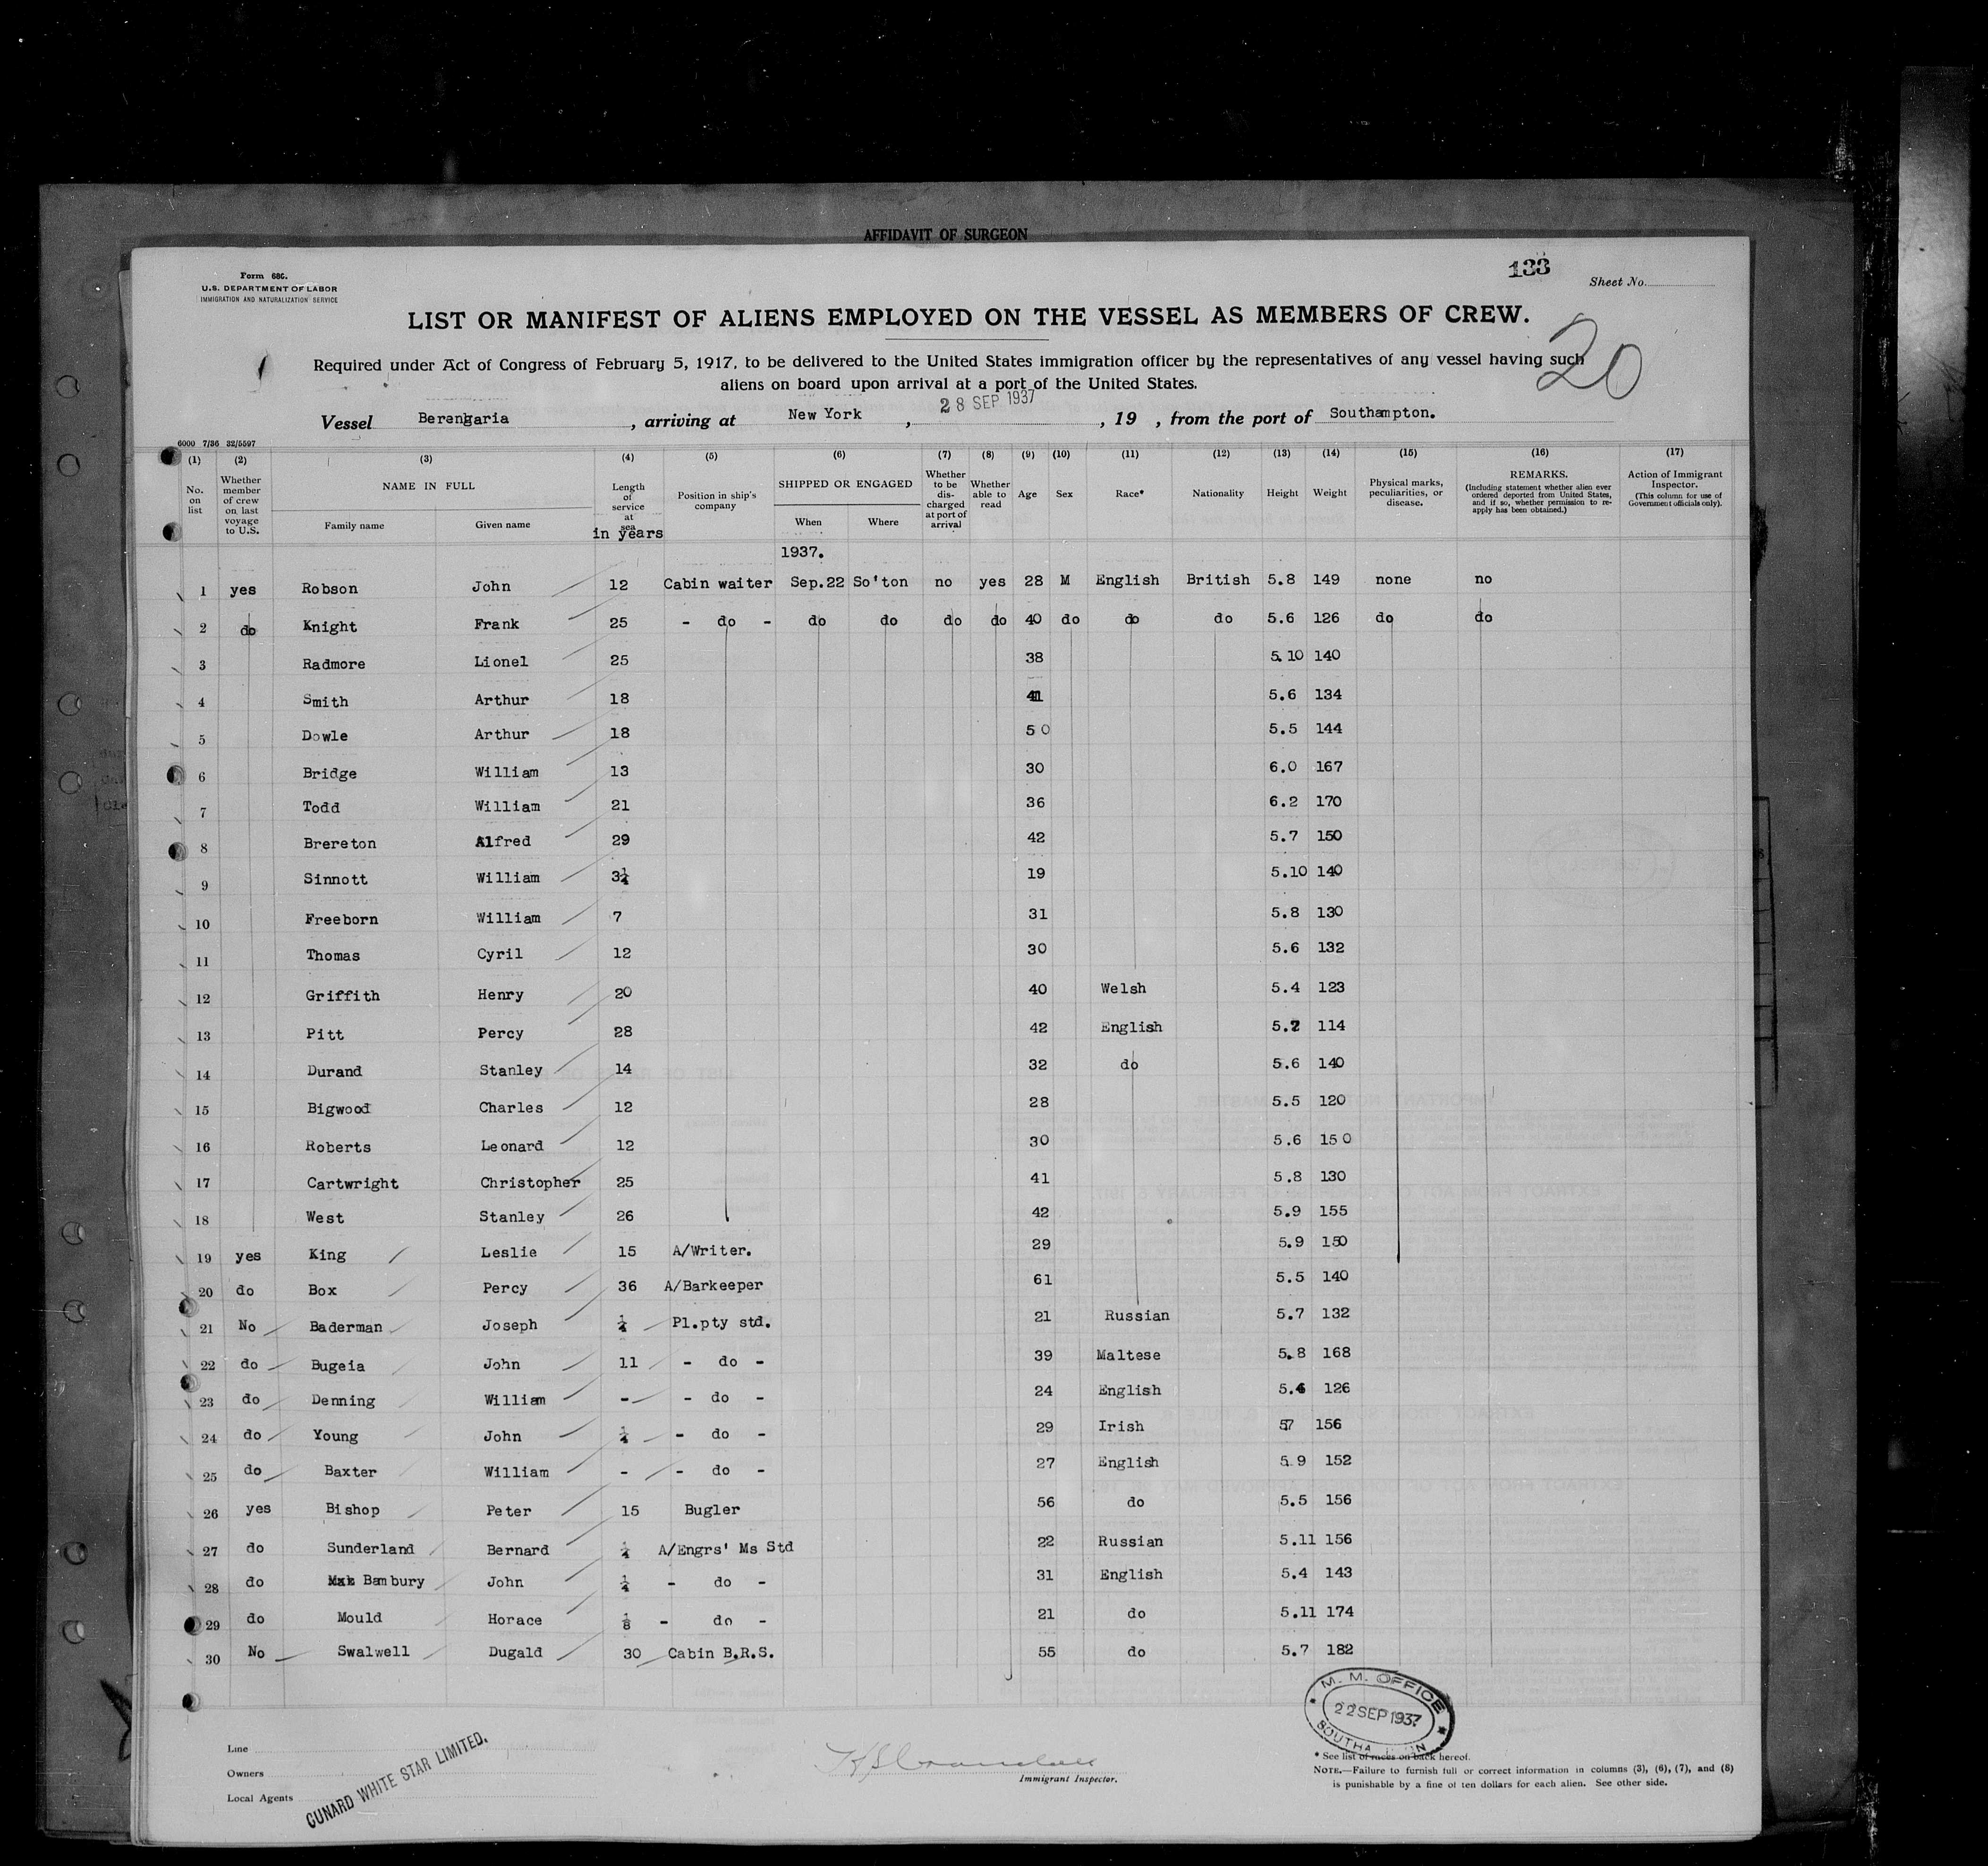 AFFIDAVIT OF SURGEON
133
Form 680.
U.S. DEPARTMENT OF LABOR
IMMIGRATION AND NATURALIZATION SERVICE
Sheet No.
LIST OR MANIFEST OF ALIENS EMPLOYED ON THE VESSEL AS MEMBERS OF CREW.
20
Required under Act of Congress of February 5, 1917, to be delivered to the United States immigration officer by the representatives of any vessel having such
aliens on board upon arrival at a port of the United States.
Vessel Berengaria, arriving at New York, 28 SEP 1937, 19 , from the port of Southampton.
6000 7/36 32/5597
(1) (2) (3) (4) (5) (6) (7) (8) (9) (10) (11) (12) (13) (14) (15) (16) (17)
No. on list
Whether member of crew on last voyage to U.S.
NAME IN FULL
Family name Given name
Length of service at sea
in years
Position in ship's company
SHIPPED OR ENGAGED
When Where
Whether to be discharged at port of arrival
Whether able to read
Age
Sex
Race*
Nationality
Height
Weight
Physical marks, peculiarities, or disease.
REMARKS.
(Including statement whether alien ever ordered deported from United States, and if so, whether permission to reapply has been obtained.)
Action of Immigrant Inspector.
(This column for use of Government officials only).
1937.
1 yes Robson John 12 Cabin waiter Sep.22 So'ton no yes 28 M English British 5.8 149 none no
2 do Knight Frank 25 - do - do do do do 40 do do do 5.6 126 do do
3 Radmore Lionel 25 38 5.10 140
4 Smith Arthur 18 41 5.6 134
5 Dowle Arthur 18 50 5.5 144
6 Bridge William 13 30 6.0 167
7 Todd William 21 36 6.2 170
8 Brereton Alfred 29 42 5.7 150
9 Sinnott William 3¼ 19 5.10 140
10 Freeborn William 7 31 5.8 130
11 Thomas Cyril 12 30 5.6 132
12 Griffith Henry 20 40 Welsh 5.4 123
13 Pitt Percy 28 42 English 5.2 114
14 Durand Stanley 14 32 do 5.6 140
15 Bigwood Charles 12 28 5.5 120
16 Roberts Leonard 12 30 5.6 150
17 Cartwright Christopher 25 41 5.8 130
18 West Stanley 26 42 5.9 155
19 yes King Leslie 15 A/Writer. 29 5.9 150
20 do Box Percy 36 A/Barkeeper 61 5.5 140
21 No Baderman Joseph ¼ Pl.pty std. 21 Russian 5.7 132
22 do Bugeia John 11 - do - 39 Maltese 5.8 168
23 do Denning William - - do - 24 English 5.4 126
24 do Young John ¼ - do - 29 Irish 57 156
25 do Baxter William - - do - 27 English 5.9 152
26 yes Bishop Peter 15 Bugler 56 do 5.5 156
27 do Sunderland Bernard ¼ A/Engrs' Ms Std 22 Russian 5.11 156
28 do Bambury John ¼ - do - 31 English 5.4 143
29 do Mould Horace ⅛ - do - 21 do 5.11 174
30 No Swalwell Dugald 30 Cabin B.R.S. 55 do 5.7 182
M. M. OFFICE
22 SEP 1937
Line
Owners
Local Agents
CUNARD WHITE STAR LIMITED.
Immigrant Inspector.
* See list of races on back hereof.
NOTE.—Failure to furnish full or correct information in columns (3), (6), (7), and (8)
is punishable by a fine of ten dollars for each alien. See other side.